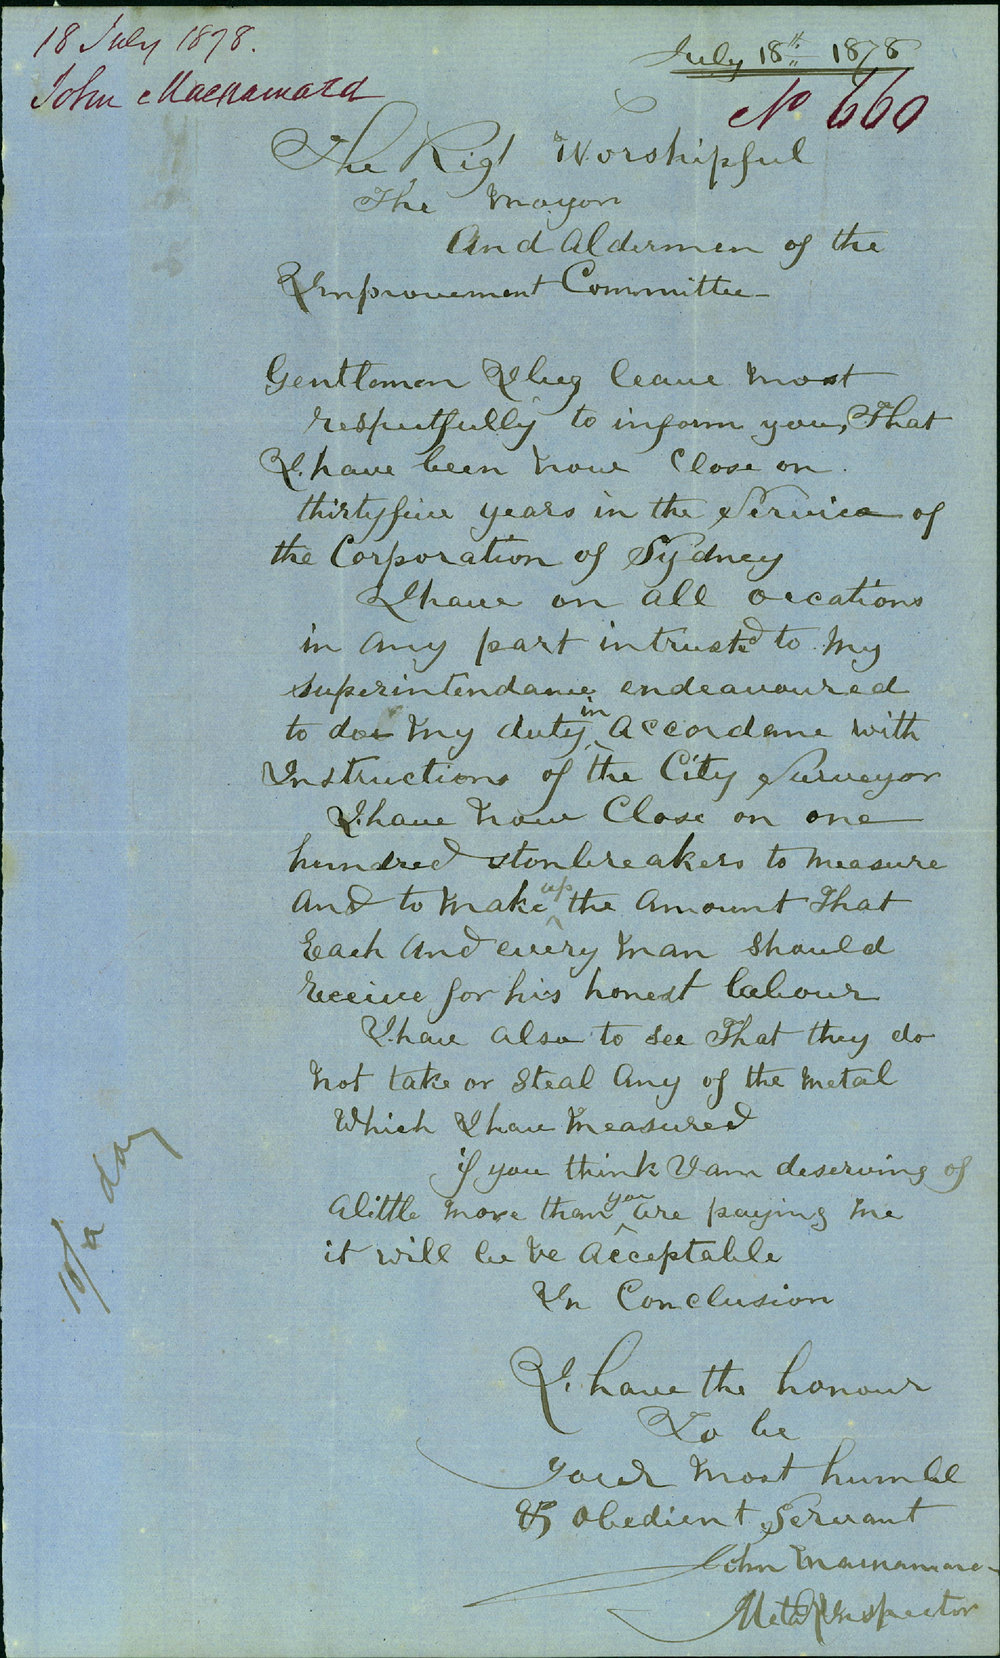 18 July 1878.
John Macnamara
July 18th 1878
No 660
The Rigt Worshipful
The Mayor
And Aldermen of the
Improvement Committee
Gentlemen I beg leave most
respectfully to inform you, That
I have been now Close on
thirtyfive years in the Service of
the Corporation of Sydney
I have on all occations
in any part intrusted to My
superintendance endeavoured
to doe My duty in Accordance with
Instructions of the City Surveyor
I have now Close on one
hundred stonbreakers to measure
And to make up the Amount That
Each And every man should
receive for his honest labour
I have also to see That they do
not take or steal Any of the metal
Which I have measured
if you think I am deserving of
a little more than you are paying me
it will be Acceptable
In Conclusion
I have the honour
To be
Your most humble
& obedient Servant
John Macnamara
Metal Inspector
10/ a day